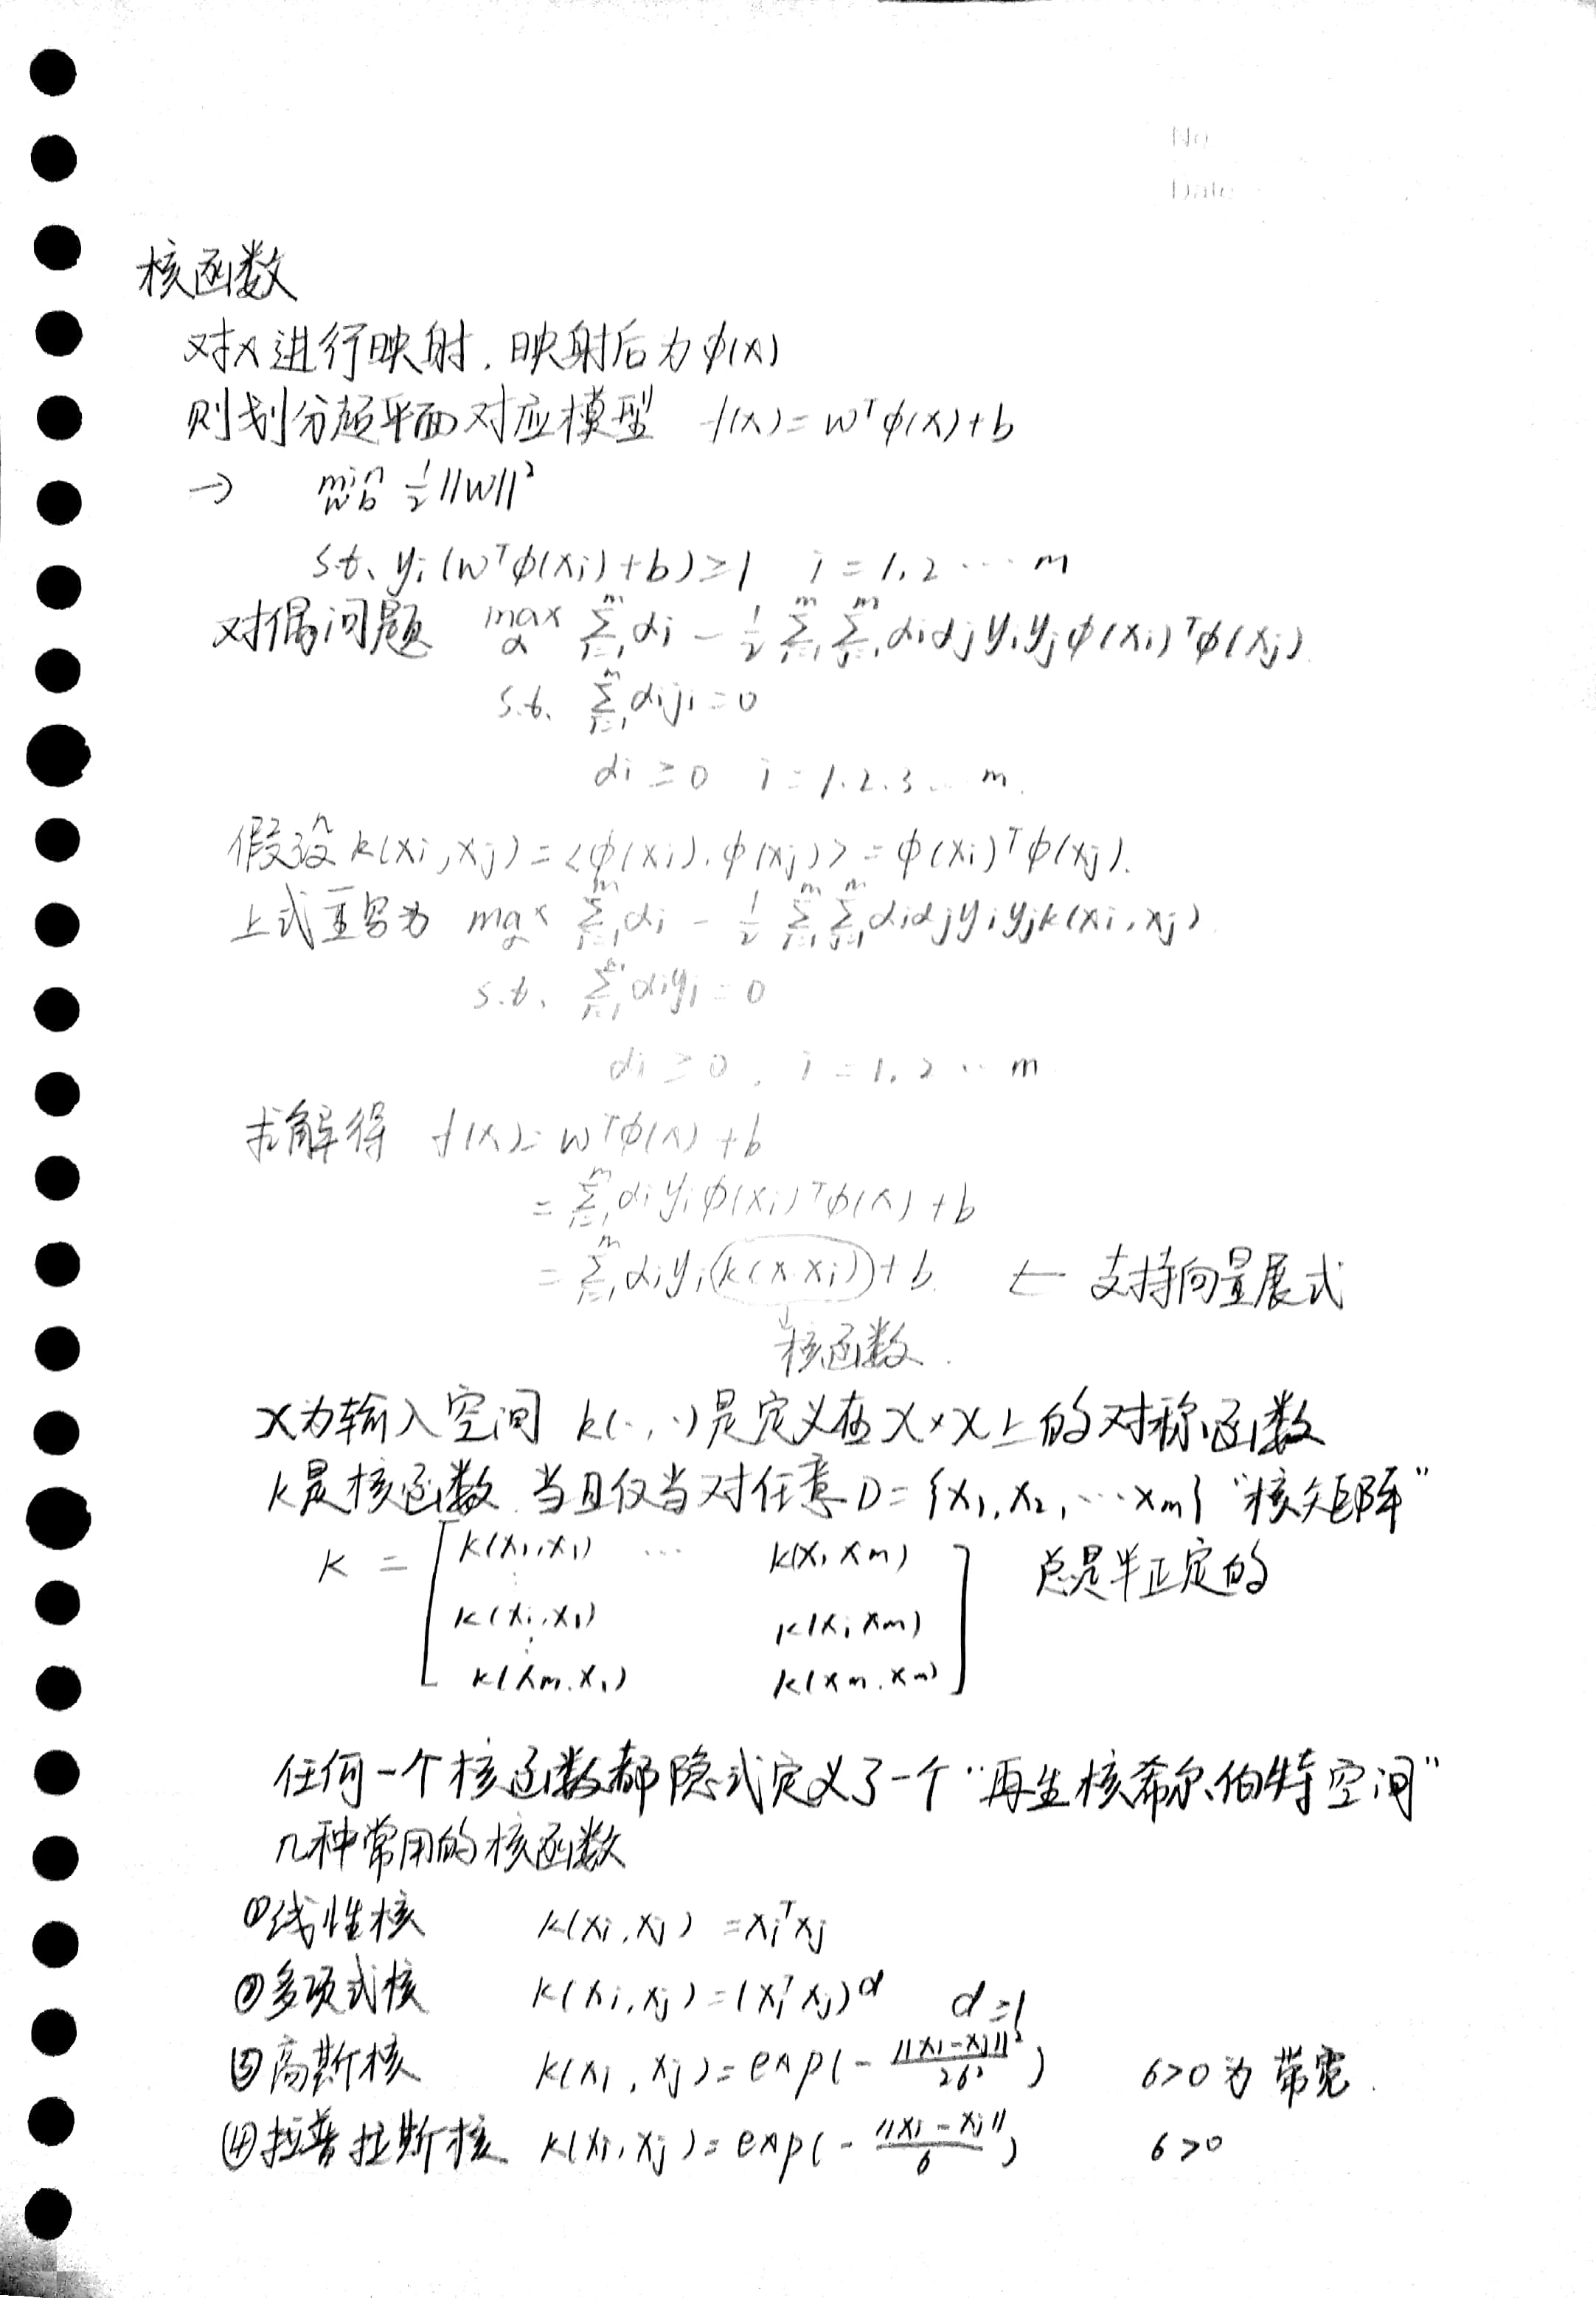 No
Date
核函数
对x进行映射. 映射后为 φ(x)
则划分超平面对应模型 f(x) = wᵀφ(x)+b
→ min w b ½||w||²
s.t. yi(wᵀφ(xi)+b) ≥ 1 i = 1.2 ⋯ m
对偶问题 max α Σ_{i=1}^m αi − ½ Σ_{i=1}^m Σ_{j=1}^m αiαj yiyj φ(xi)ᵀφ(xj)
s.t. Σ_{i=1}^m αiyi = 0
αi ≥ 0 i = 1.2.3 ⋯ m.
假设 k(xi, xj) = <φ(xi). φ(xj)> = φ(xi)ᵀφ(xj).
上式重写为 max α Σ_{i=1}^m αi − ½ Σ_{i=1}^m Σ_{j=1}^m αiαj yiyj k(xi, xj)
s.t. Σ_{i=1}^m αiyi = 0
αi ≥ 0, i = 1.2 ⋯ m
求解得 f(x) = wᵀφ(x)+b
= Σ_{i=1}^m αi yi φ(xi)ᵀφ(x)+b
= Σ_{i=1}^m αi yi (k(x. xi))+b ← 支持向量展式
↓
核函数.
X为输入空间 k(·,·)是定义在X×X上的对称函数
k是核函数 当且仅当对任意 D = {x1, x2, ⋯ xm} “核矩阵”
K = [ k(x1, x1) ⋯ k(x1 xm) 总是半正定的
⋮
k(xi, x1) k(xi xm)
⋮
k(xm. x1) k(xm. xm) ]
任何一个核函数都隐式定义了一个“再生核希尔伯特空间”
几种常用的核函数
①线性核 k(xi, xj) = xiᵀxj
②多项式核 k(xi, xj) = (xiᵀxj)^d d≥1
③高斯核 k(xi, xj) = exp(− ||xi−xj||² / 2б²) б>0 为带宽.
④拉普拉斯核 k(xi, xj) = exp(− ||xi−xj|| / б) б>0